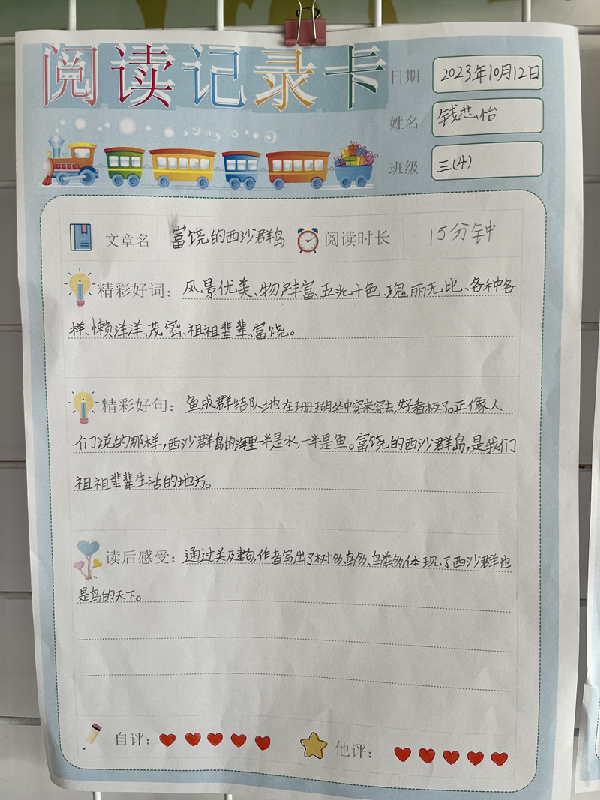 阅读记录卡
日期 2023年10月12日
姓名 钱芷怡
班级 三(4)
文章名 富饶的西沙群岛 阅读时长 15分钟
精彩好词: 风景优美、物产丰富、五光十色、瑰丽无比、各种各
样、懒洋洋、茂密、祖祖辈辈、富饶。
精彩好句: 鱼成群结队地在珊瑚丛中穿来穿去,好看极了。正像人
们说的那样,西沙群岛的海里一半是水,一半是鱼。富饶的西沙群岛,是我们
祖祖辈辈生活的地方。
读后感受: 通过关键句,作者写出了树多、鸟多、鸟蛋多,体现了西沙群岛也
是鸟的天下。
自评: 他评: